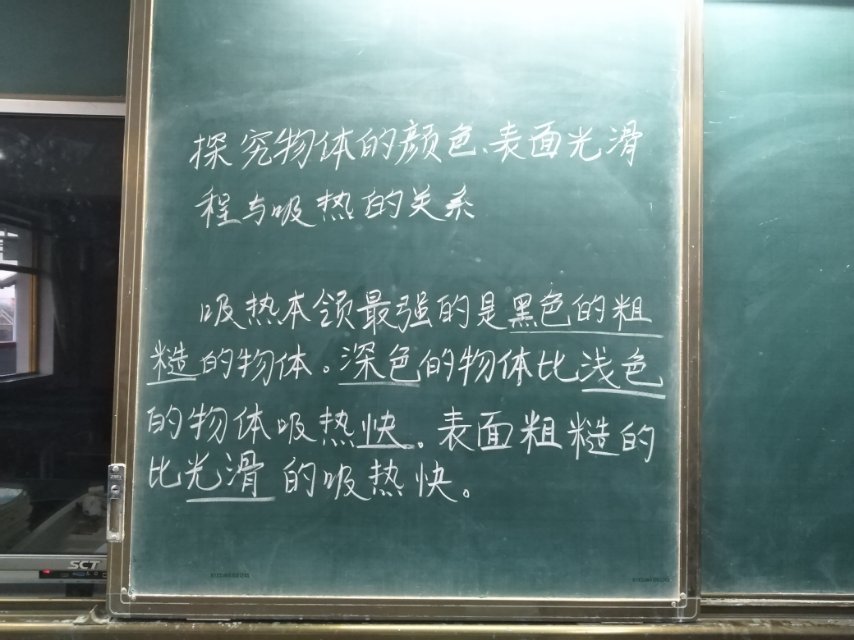 探究物体的颜色、表面光滑
程与吸热的关系
吸热本领最强的是黑色的粗
糙的物体。深色的物体比浅色
的物体吸热快。表面粗糙的
比光滑的吸热快。
SCT